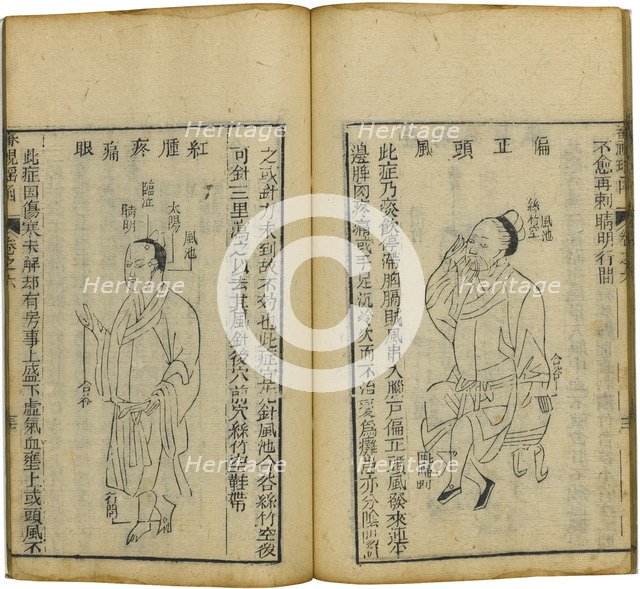 不愈再刺睛明行間
偏正頭風
風池
絲竹空
合谷
此症乃痰飲停滯胸膈賊風串入腦戶偏正頭風發來連半
邊脾肉疼痛或手足沉冷久而不治變為癱瘓亦分陰
之或針力未到故不效也此症宜先針風池合谷絲竹空後
可針三里瀉之以去其風針後穴前穴絲竹空鞋帶
紅腫疼痛眼
風池
太陽
臨泣
睛明
合谷
行間
此症因傷寒未解却有房事上盛下虛氣血壅上或頭風不
卷之六
Heritage Images